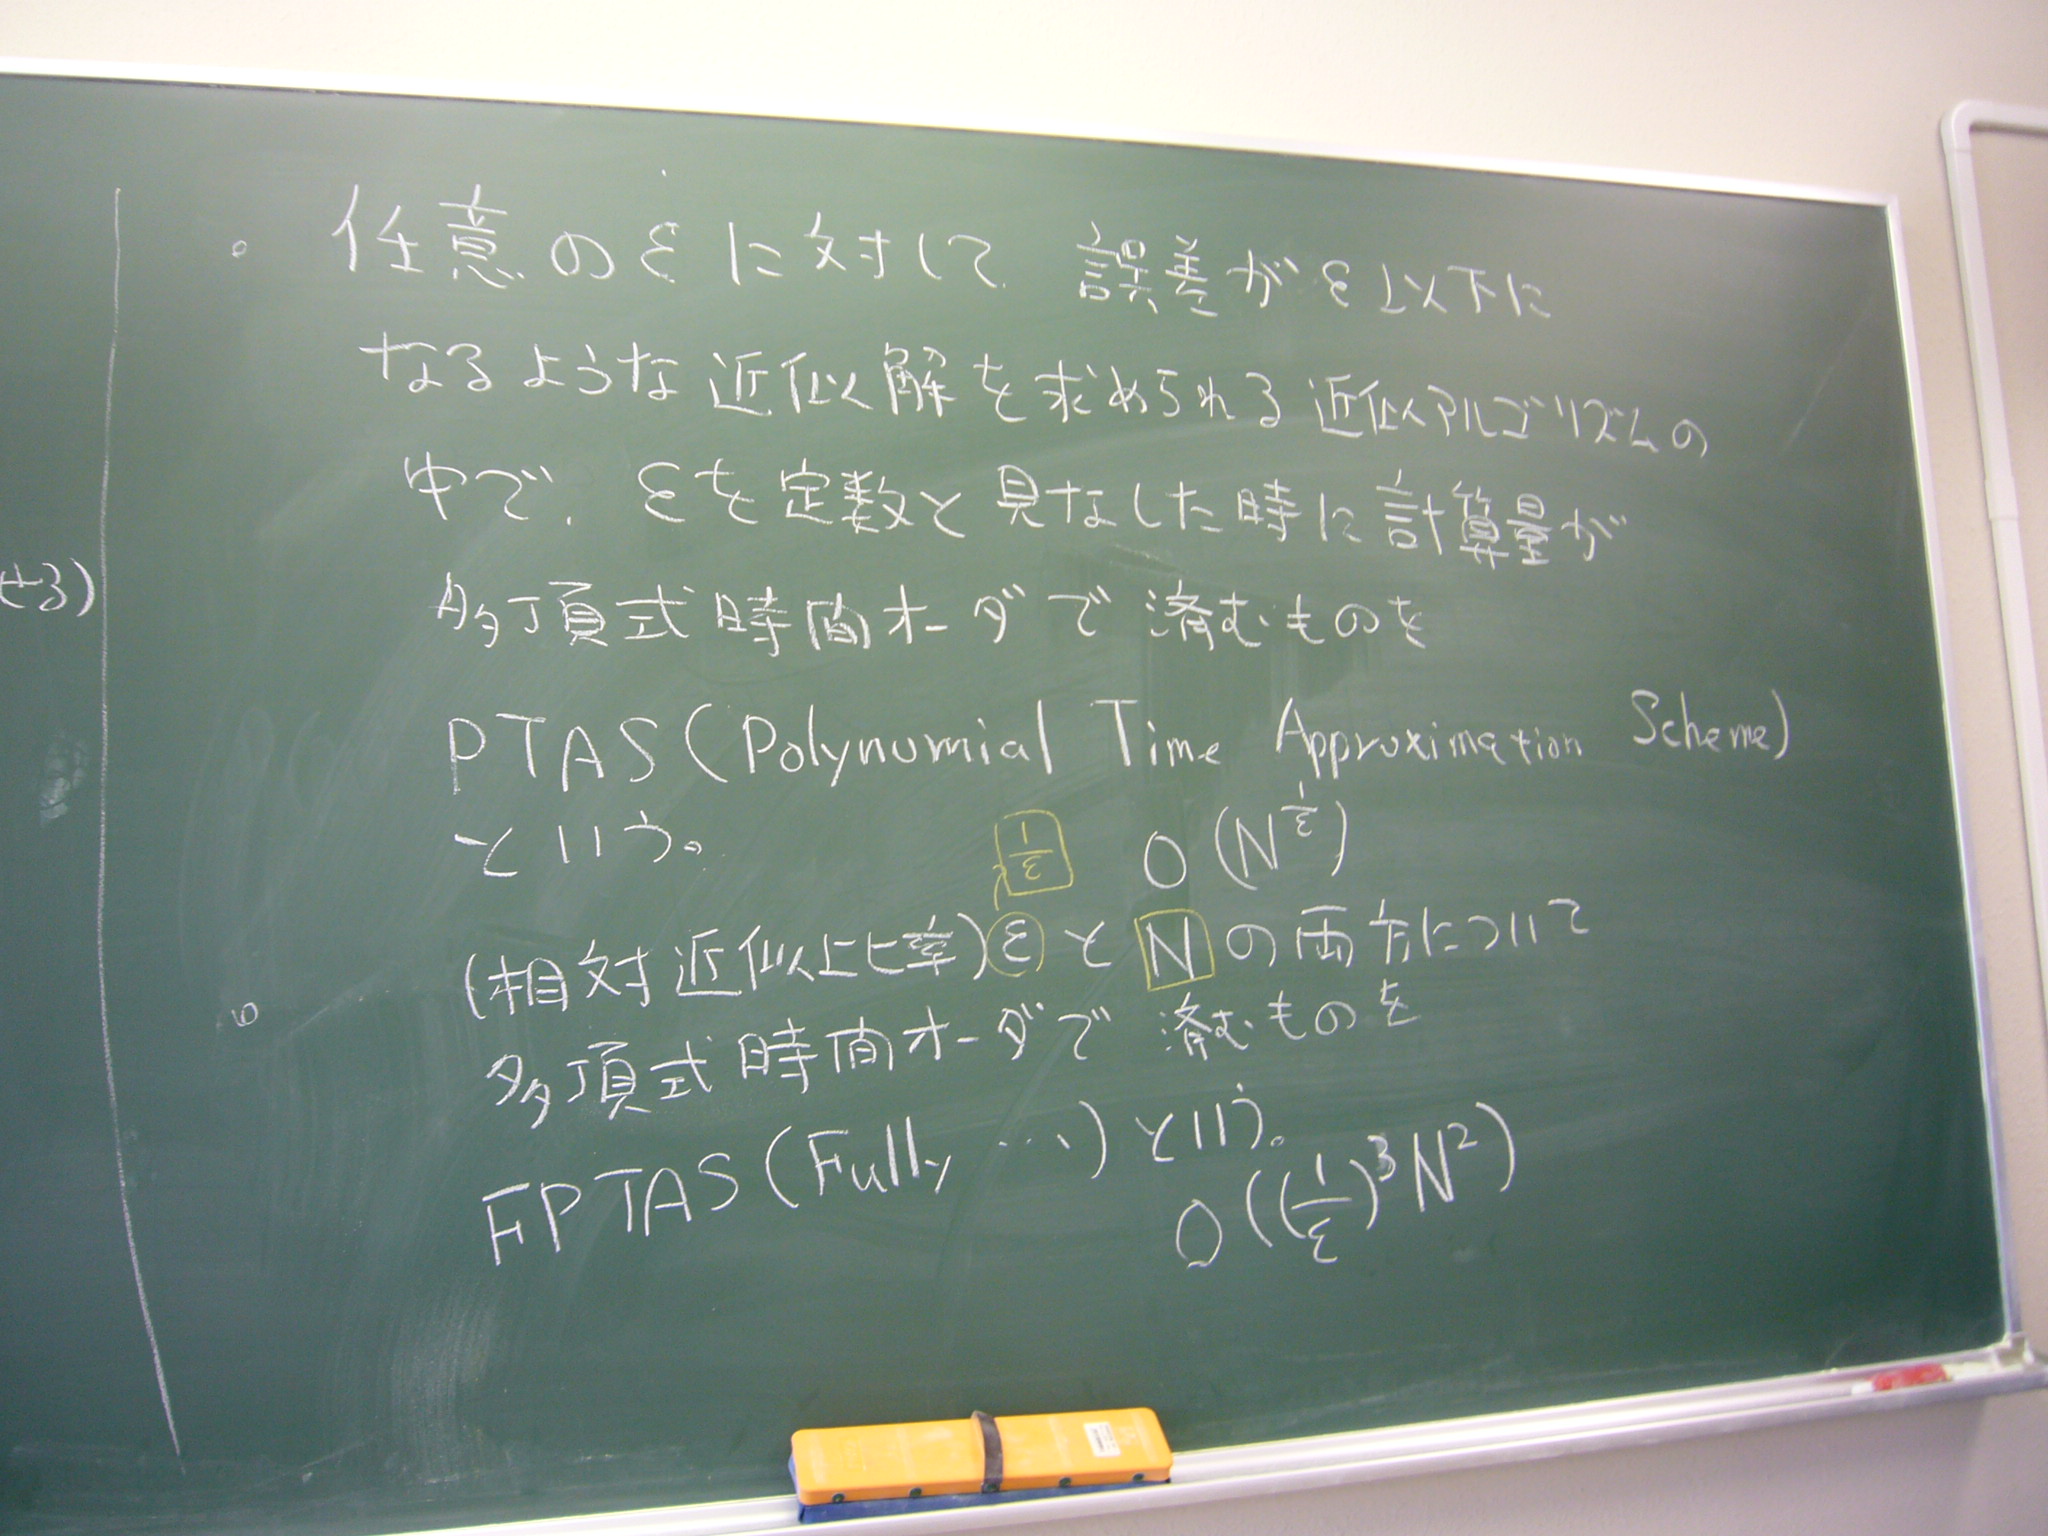 せる)
。任意のεに対して、誤差がε以下に
なるような近似解を求められる近似アルゴリズムの
中で、εを定数と見なした時に計算量が
多項式時間オーダで済むものを
PTAS(Polynomial Time Approximation Scheme)
という。 1/ε O(N^{1/ε})
。(相対近似比率)εとNの両方について
多項式時間オーダで済むものを
FPTAS(Fully …)という。
O((1/ε)^3 N^2)